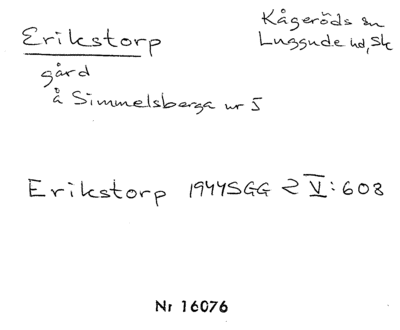 Erikstorp
Kågeröds sn
Luggude hd, Sk
gård
å Simmelsberga nr 5
Erikstorp 1944SGG 2 V:608
Nr 16076